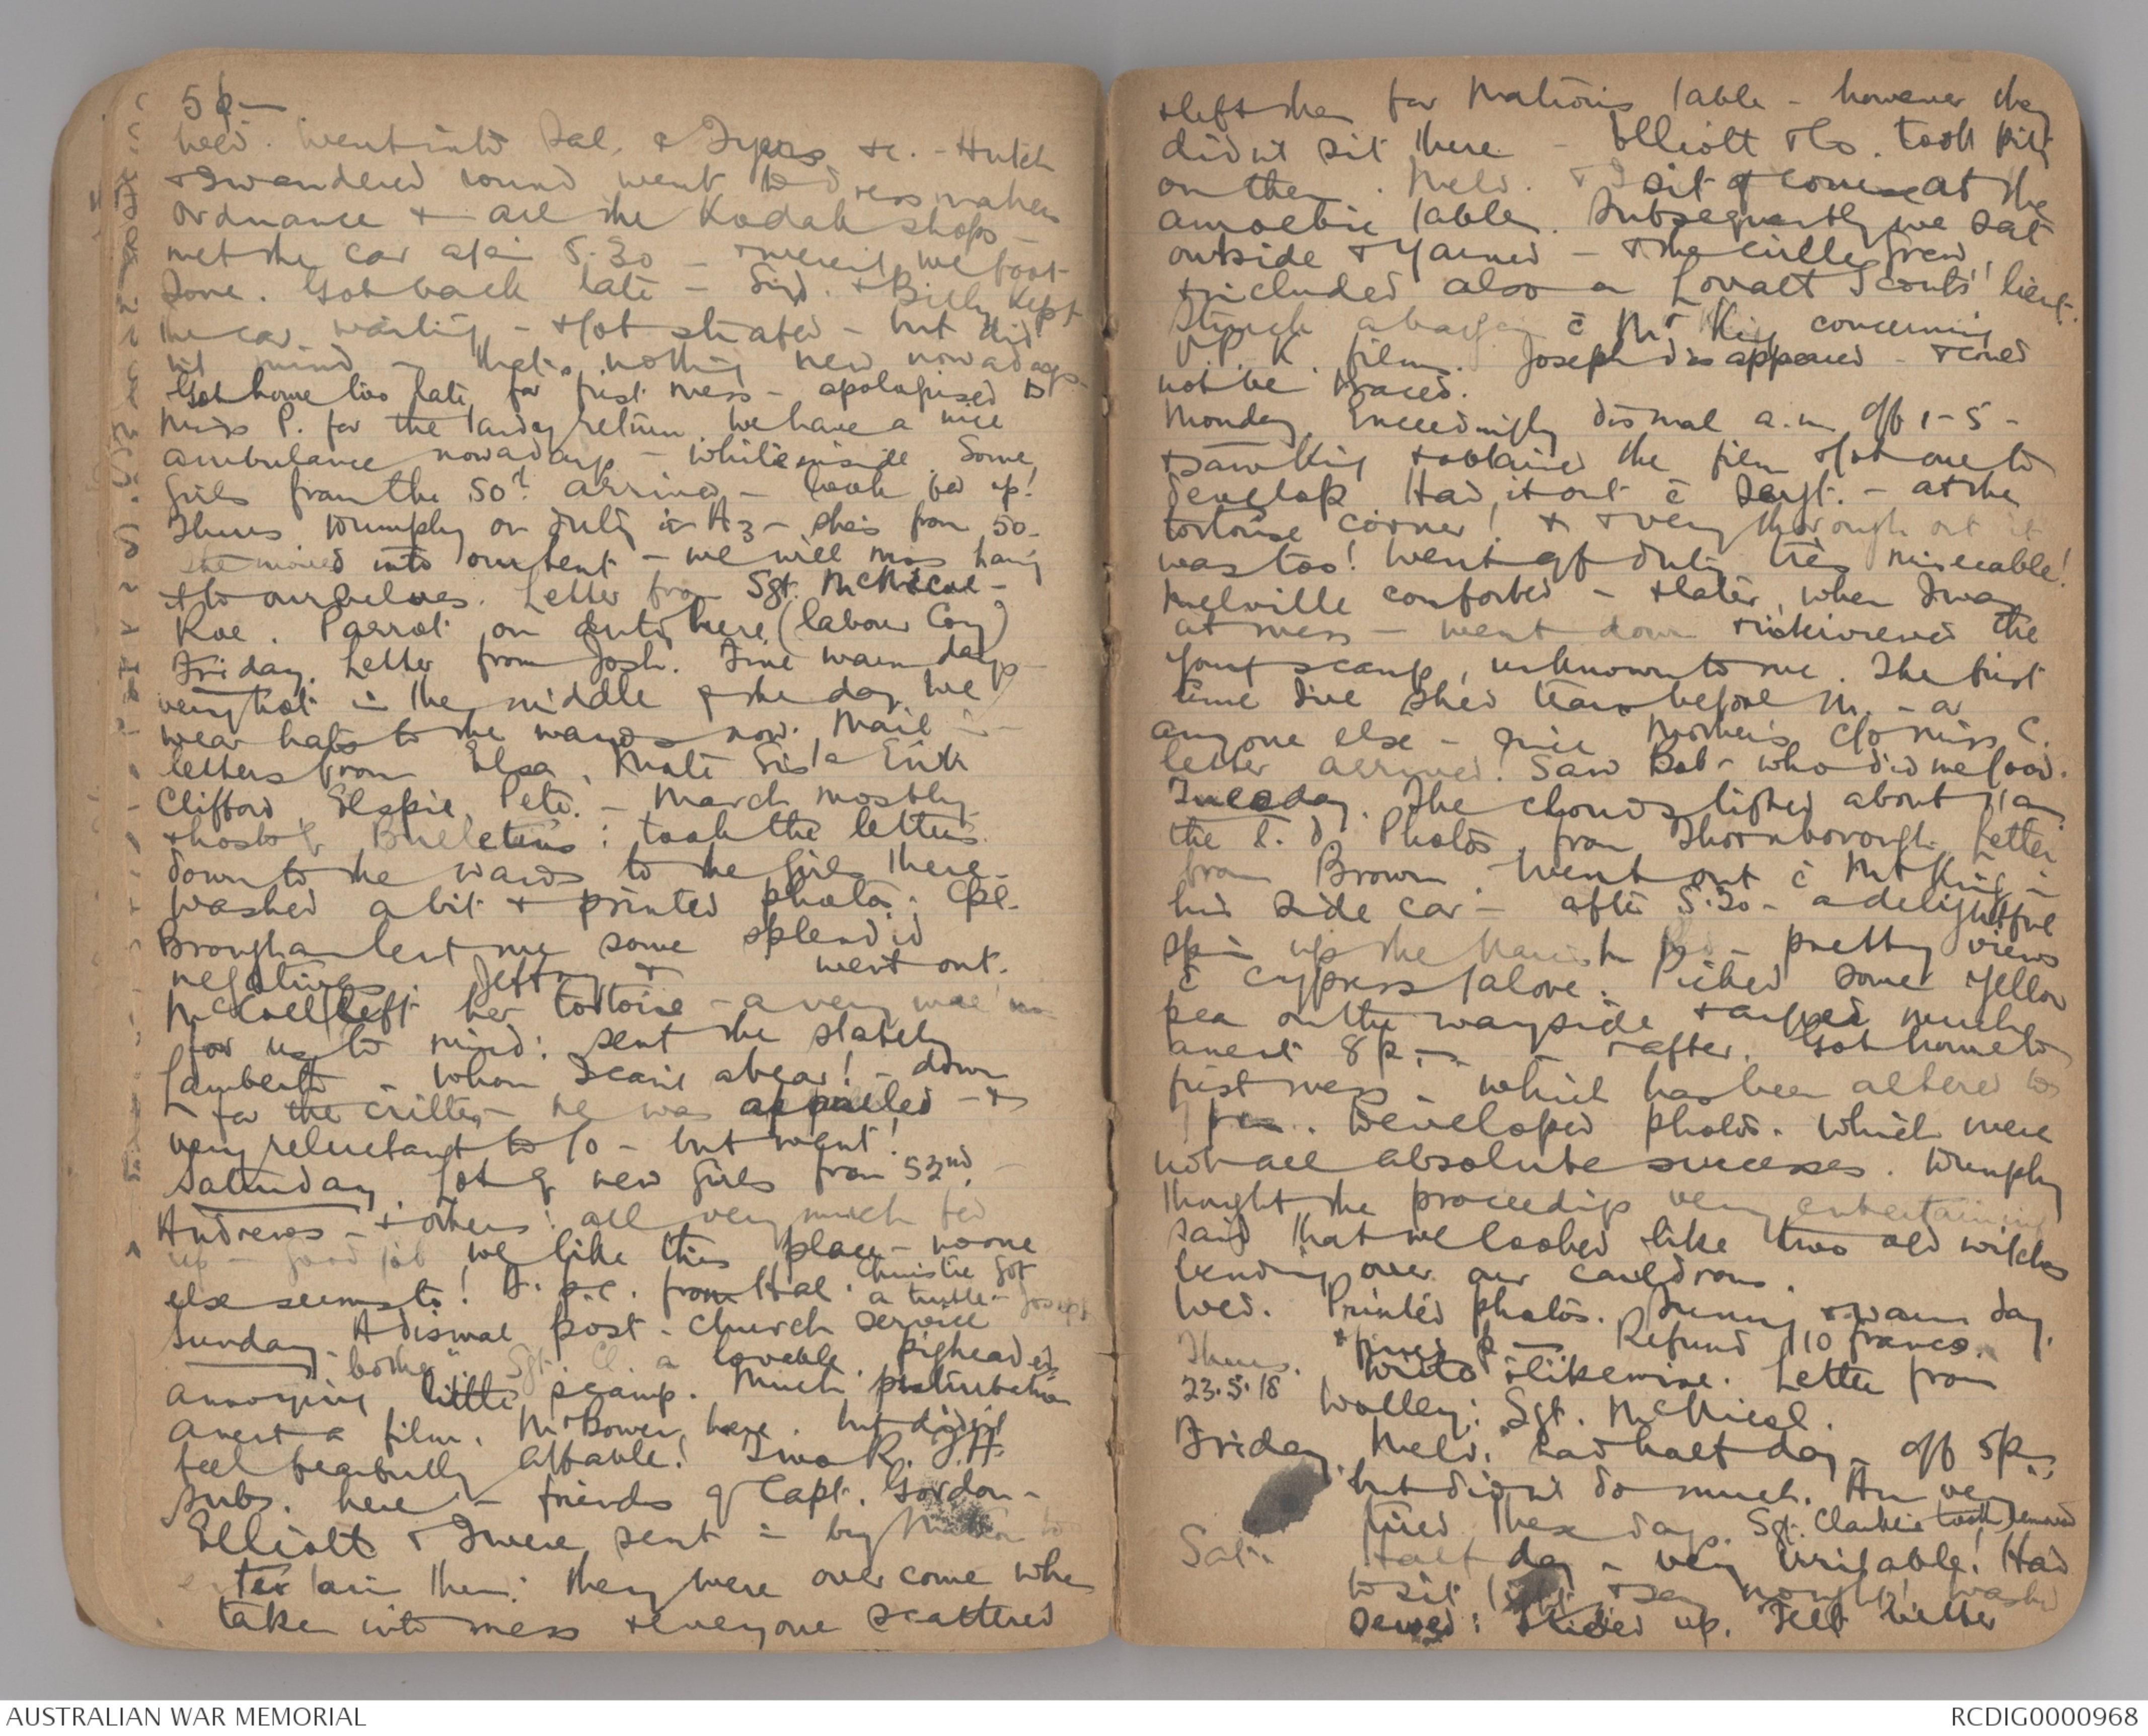 56
Went into Sal. & & c. - Hutch
& I wandered round went to Dressmakers
Ordnance & all the Kodak shops -
met the car again 5.30 - & were
done. Got back late - & Billy kept
the car waiting - & got strafed - but did
n't mind - that's nothing new nowadays -
Got home too late for first mess - apologised to
Miss P. for the tardy return. We have a nice
ambulance nowadays - white inside. Some
girls from the 50th arrived - look fed up!
Thurs. on duty in A3 - she's from 50.
She moved into our tent - we will miss having
it to ourselves. Letter from Sgt. McNicol -
Roe. Parrot on duty here (labour Coy)
Friday. Letter from Josh. Fine warm days
very hot in the middle of the day. We
wear hats to the wards now. Mail in -
letters from Elsa,
Clifford, Elspie, Pete. - March mostly
& hosts of Bulletins: took the letters
down to the wards to the girls there.
Washed a bit & printed photos. Cpl.
Brougham lent me some splendid
negatives. Jeffrey & went out.
McColl left her tortoise - a very wee 'un
for us to mind: sent the stately
Lambert - whom I can't abear! - down
for the critter - he was appalled - &
very reluctant to go - but went!
Saturday. Lot of new girls from 52nd. -
Andrews - & others: all very much fed
up - good job we like this place - no one
else seems to! A p.c. from Hal. Christie got
a turtle - Joseph
Sunday. A dismal post-church service
bother". Sgt. Cl. a lovable, pigheaded
annoying little scamp. Much perturbation
anent a film. Mr Bower here. but didn't
feel fearfully affable! Two R.
subs. here - friends of Capt. Gordon -
Elliott & I were sent in by Matron to
entertain them: they were overcome when
taken into mess & everyone scattered
& left them for Matron's table - however they
didn't sit there - Elliott & Co. took pity
on them. Melv. & I sit of course at the
amoebic table. Subsequently we sat
outside & yarned - & the circle grew,
& included also a Lovatt Scouts' lieut.
Struck a bargain c̄ Mr King concerning
V.P.K. films. Joseph disappeared - & could
not be traced.
Monday. Exceedingly dismal a.m. off 1-5 -
& saw King & obtained the film & got one to
develop. Had it out c̄ Sergt. - at the
tortoise corner! & & very thorough out it
was too! Went off duty très miserable!
Melville comforted - & later, when I was
at mess - went down & interviewed the
young scamp, unknown to me. The first
time I've shed tears before M. - or
anyone else - Mother's c/o Miss C.
letter arrived! Saw Bob - who did me good.
Tuesday. The clouds lifted about 11am
the Photos from Thornborough. Letter
from Brown. Went out c̄ Mr King in
his side car - after 5.30 - a delightful
spin up the Rd - pretty views
c̄ cypress galore. Picked some yellow
pea on the wayside & argued much
anent 8 p.m. - & after. Got home to
first mess - which has been altered to
7 p.m. Developed photos. which were
not all absolute successes.
thought the proceedings very entertaining
said that we looked like two old witches
bending over our cauldrons.
Wed. Printed photos. Sunny & warm day.
& Refund 110 francs.
Thurs.
23.5.18
Ditto & likewise. Letter from
Wolley: Sgt. McNicol.
Friday. Melv. had half day - off 5 p.m.
but didn't do much. Am very
tired these days. Sgt. Clarkie's tooth removed
Sat. Half day - very irritable! Had
to sit tight & say nought! Washed
sewed: up. Felt better
AUSTRALIAN WAR MEMORIAL
RCDIG0000968